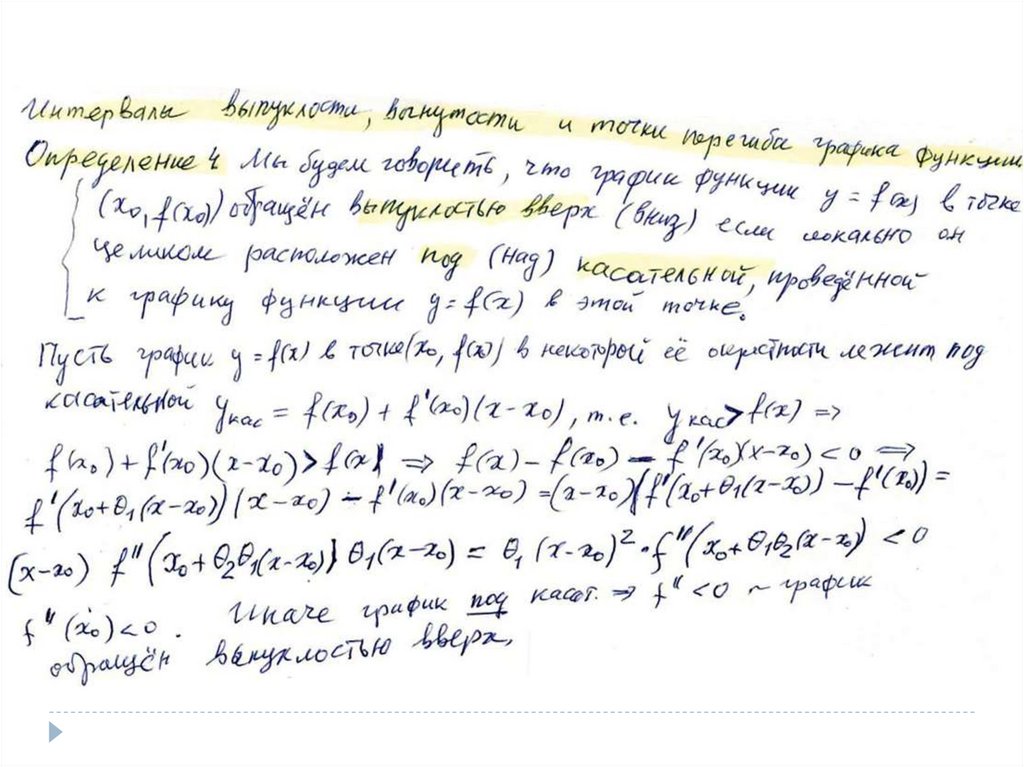 Интервалы выпуклости, вогнутости и точки перегиба графика функции.
Определение 4 Мы будем говорить, что график функции y = f(x) в точке
(x₀, f(x₀)) обращён выпуклостью вверх (вниз) если локально он
целиком расположен под (над) касательной, проведённой
к графику функции y = f(x) в этой точке.
Пусть график y = f(x) в точке (x₀, f(x₀)) в некоторый её окрестности лежит под
касательной yкас = f(x₀) + f'(x₀)(x-x₀), т.е. yкас > f(x) ⇒
f(x₀) + f'(x₀)(x-x₀) > f(x) ⇒ f(x) - f(x₀) - f'(x₀)(x-x₀) < 0 ⇒
f'(x₀+θ₁(x-x₀))(x-x₀) - f'(x₀)(x-x₀) = (x-x₀)(f'(x₀+θ₁(x-x₀)) - f'(x₀)) =
(x-x₀) f''(x₀+θ₂θ₁(x-x₀)) θ₁(x-x₀) = θ₁ (x-x₀)² · f''(x₀+θ₁θ₂(x-x₀)) < 0
f''(x₀) < 0. Иначе график под касат. ⇒ f'' < 0 ~ график
обращён выпуклостью вверх,